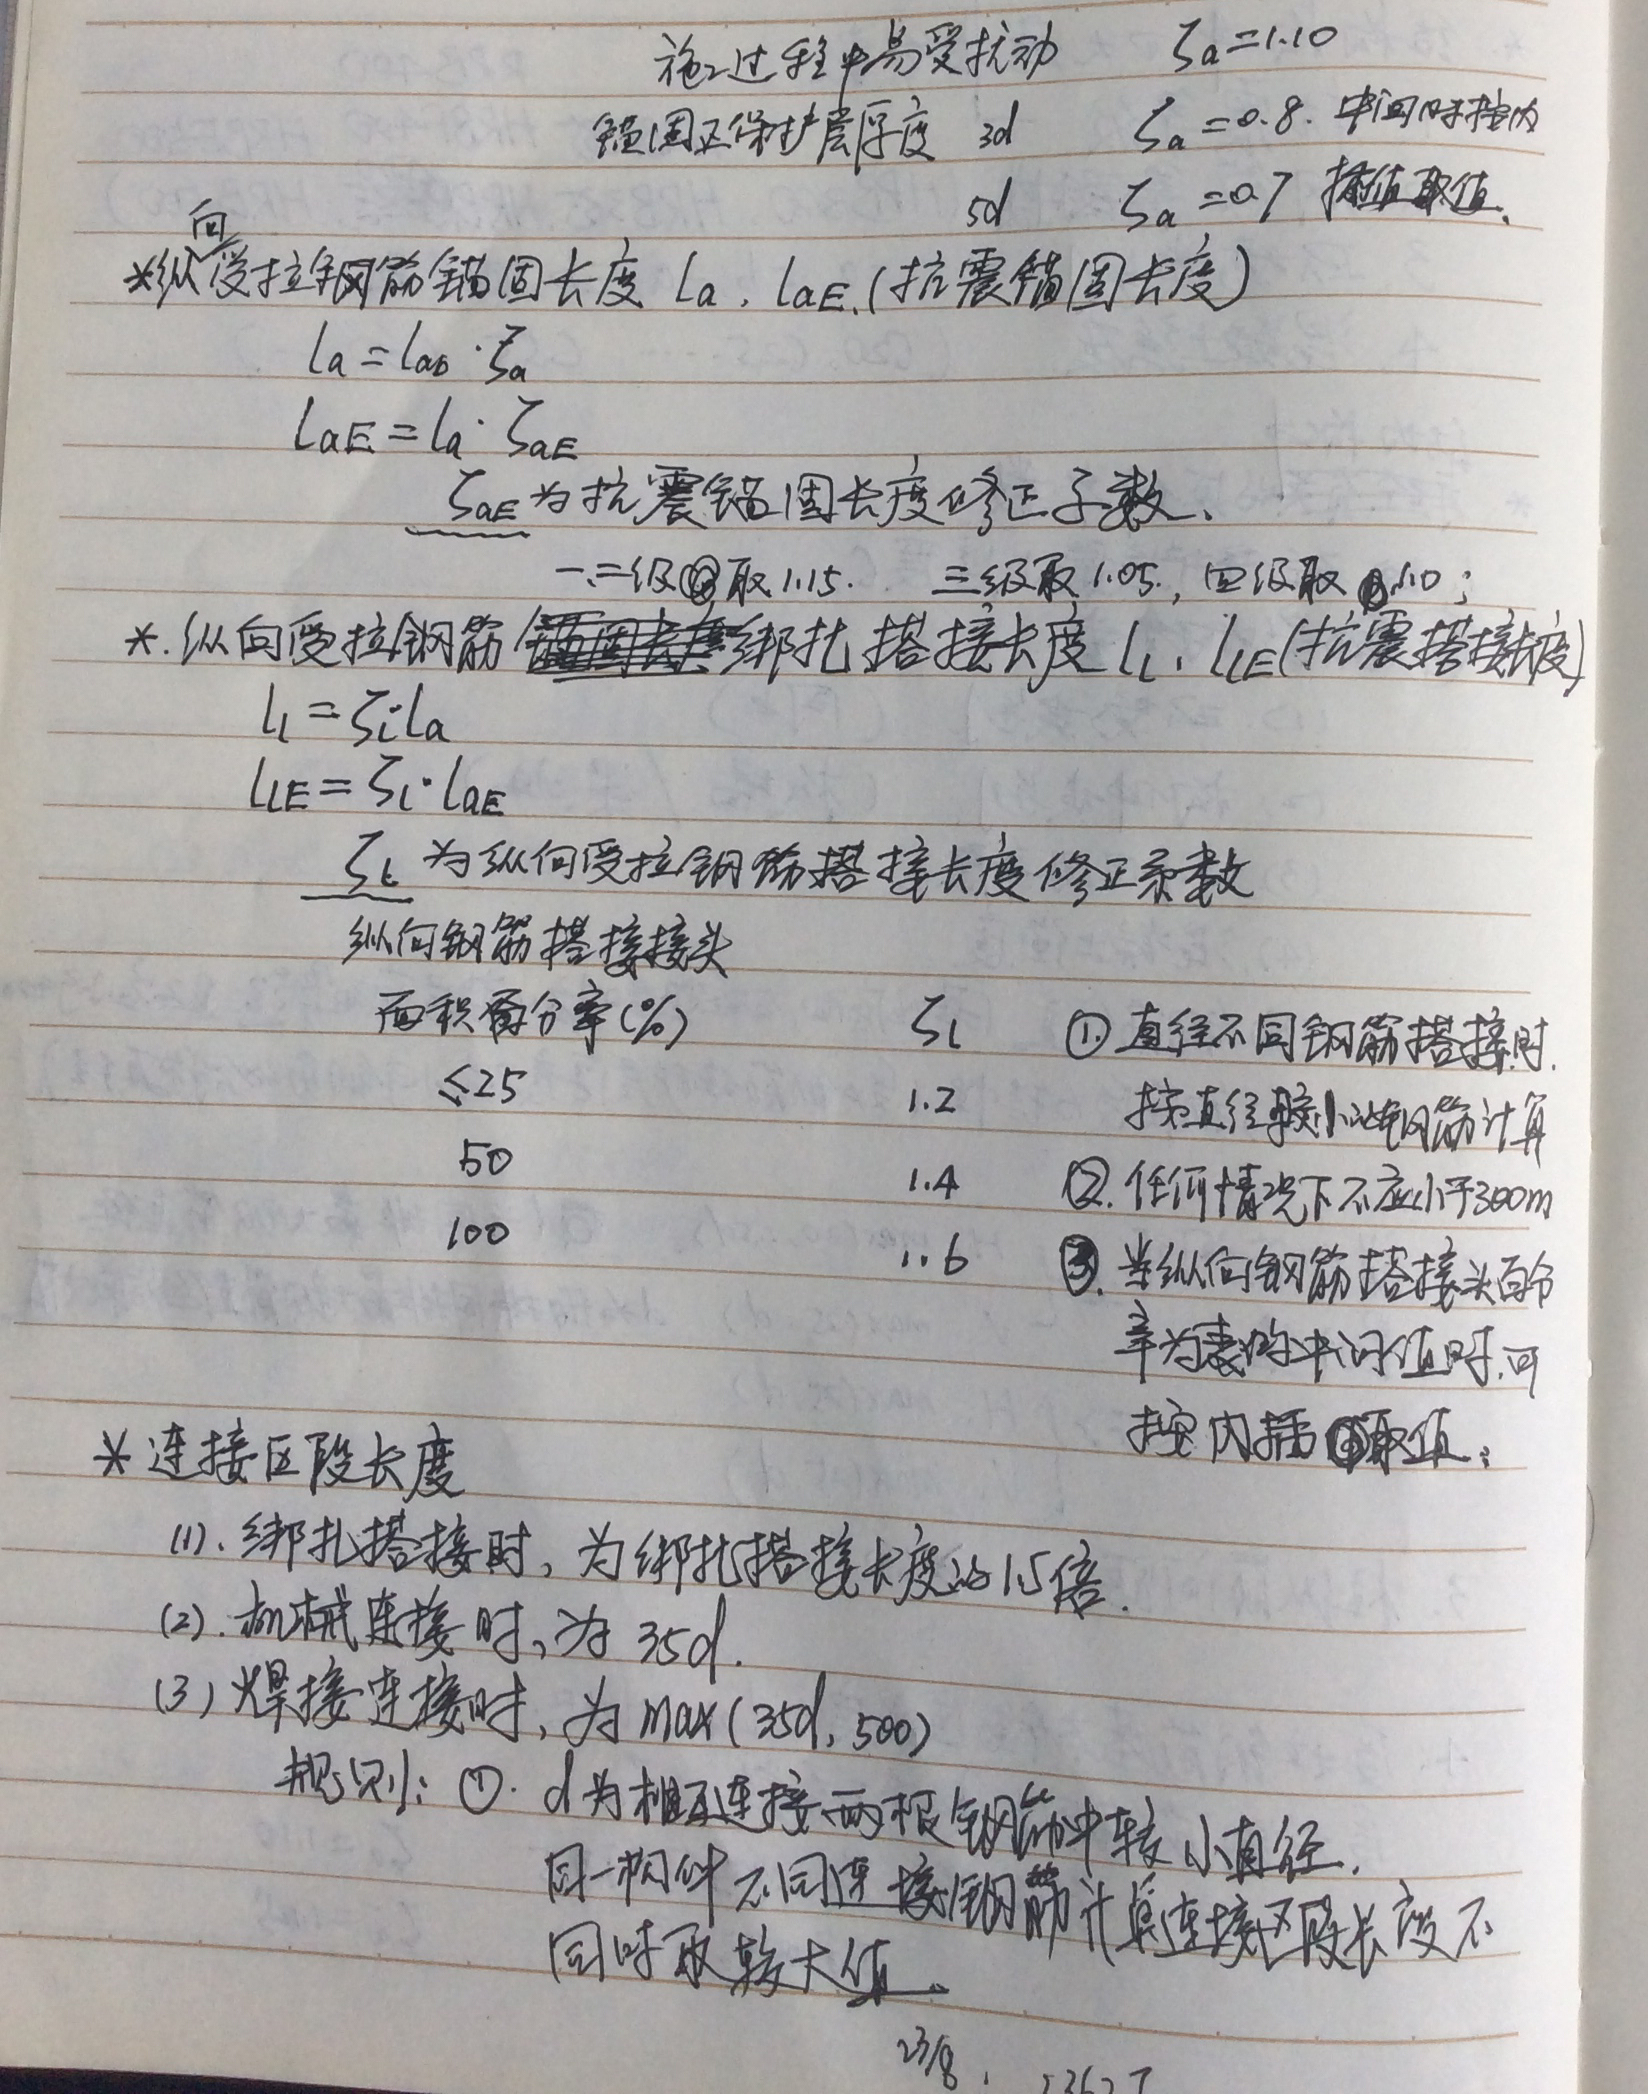 施工过程中易受扰动 ζa=1.10
锚固区保护层厚度 3d ζa=0.8. 中间时按内
5d ζa=0.7 插值取值.
*纵向受拉钢筋锚固长度 la、laE.(抗震锚固长度)
la=lab·ζa
laE=la·ζaE
ζaE为抗震锚固长度修正子数、
一、二级取1.15. 三级取1.05., 四级取1.0;
*.纵向受拉钢筋绑扎搭接长度 ll、llE(抗震搭接长度)
ll=ζl·la
llE=ζl·laE
ζl为纵向受拉钢筋搭接长度修正系数
纵向钢筋搭接接头
面积百分率(%) ζl
≤25 1.2
50 1.4
100 1.6
①.直径不同钢筋搭接时.
按直径较小的钢筋计算
②.任何情况下不应小于300m
③.当纵向钢筋搭接头百分
率为表的中间值时.可
按内插取值;
*连接区段长度
(1).绑扎搭接时,为绑扎搭接长度的1.5倍.
(2).机械连接时,为35d.
(3)焊接连接时,为max(35d,500)
规则:①.d为相互连接两根钢筋中较小直径.
同一构件不同连接钢筋计算连接区段长度不
同时取较大值.
23/8.